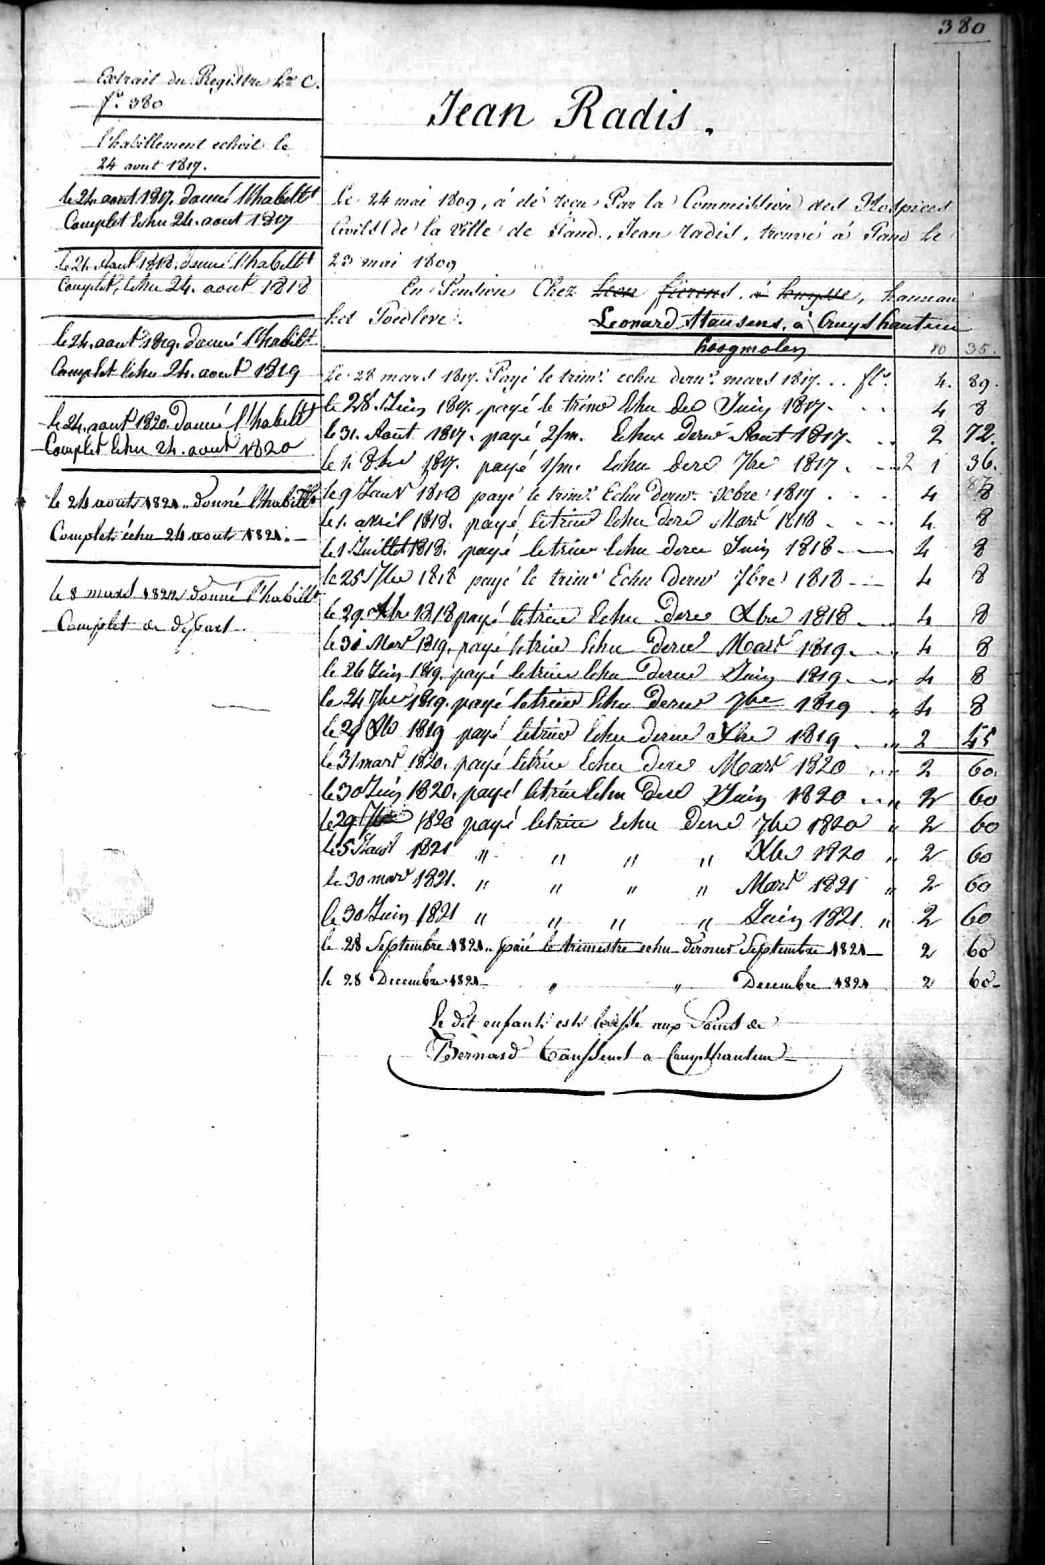 380
Extrait du Registre Lra C.
fo. 380
l'habillement echoit le
24 aout 1817.
le 24 aout 1817. donné l'habellt
Complet Echu 24. aout 1817
le 21. Aout 1818. donné l'habellt
Complet, Echu 24. aout 1818
le 24. aout 1819. donné l'habilt
Complet Echu 24. aout 1819
le 24. aout 1820. donné l'habellt
Complet Echu 24. aout 1820
le 24 aout 1821. donné l'habillt
Complet échu 24 aout 1821.
le 8 mars 1822 donné l'habillt
Complet de depart.
Jean Radis.
Le 24 mai 1809, á été reçu Par la Commission des Hospices
Civils de la Ville de Gand, Jean radis, trouvé á Gand le
23 mai 1809
En Pension Chez Leon fierens, á huysse, hameau
het Poeleve.
Leonard Stausens, á Cruyshautem
hoogmolen
10 35.
Le 28 mars 1817. Payé le trimr. echu dernr. mars 1817... fls. 4. 89.
le 28 Juin 1817. payé le trime Echu de Juin 1817. 4 8
le 31. Aout 1817. payé 2/m. Echu derne Aout 1817. 2 72.
le 1. 8bre 1817. payé 1/m. Echu dere 7bre 1817. 1 36.
le 9 Janr 1818 payé le trimr. Echu dernr. Xbre 1817. 4 8
le 1. avril 1818. payé le trim Echu dere Mars 1818 4 8
le 1 Juillet 1818. payé le trim Echu derer Juin 1818 4 8
le 25 7bre 1818 payé le trimr Echu dernr 7bre 1818 4 8
le 29 Xbre 1818 payé le trim Echu dere Xbre 1818 4 8
le 30 Mars 1819. payé le trim Echu derne Mars 1819. 4 8
le 26 Juin 1819. payé le trim Echu derne Juin 1819. 4 8
le 24 7bre 1819. payé le trim Echu derne 7bre 1819 4 8
le 29 Xb 1819 payé le trim Echu derne Xbre 1819. 2 55
le 31 mars 1820. payé le trim Echu dere Mars 1820 2 60.
le 30 Juin 1820. payé le trim Echu dere Juin 1820 2 60
le 29 7bre 1820 payé le trim Echu derne 7bre 1820 " 2 60
le 5 Janr 1821 " " " " Xbre 1820 " 2 60
le 30 mars 1821. " " " " Mars 1821 " 2 60
le 30 Juin 1821 " " " " Juin 1821. " 2 60
le 28 Septembre 1821. paié le trimestre echu dernier Septembre 1821 2 60
le 28 Decembre 1821 " " Decembre 1821 2 60
Le dit enfant est laissé aux Soins de
Bernard Taussens a Cruyshautem